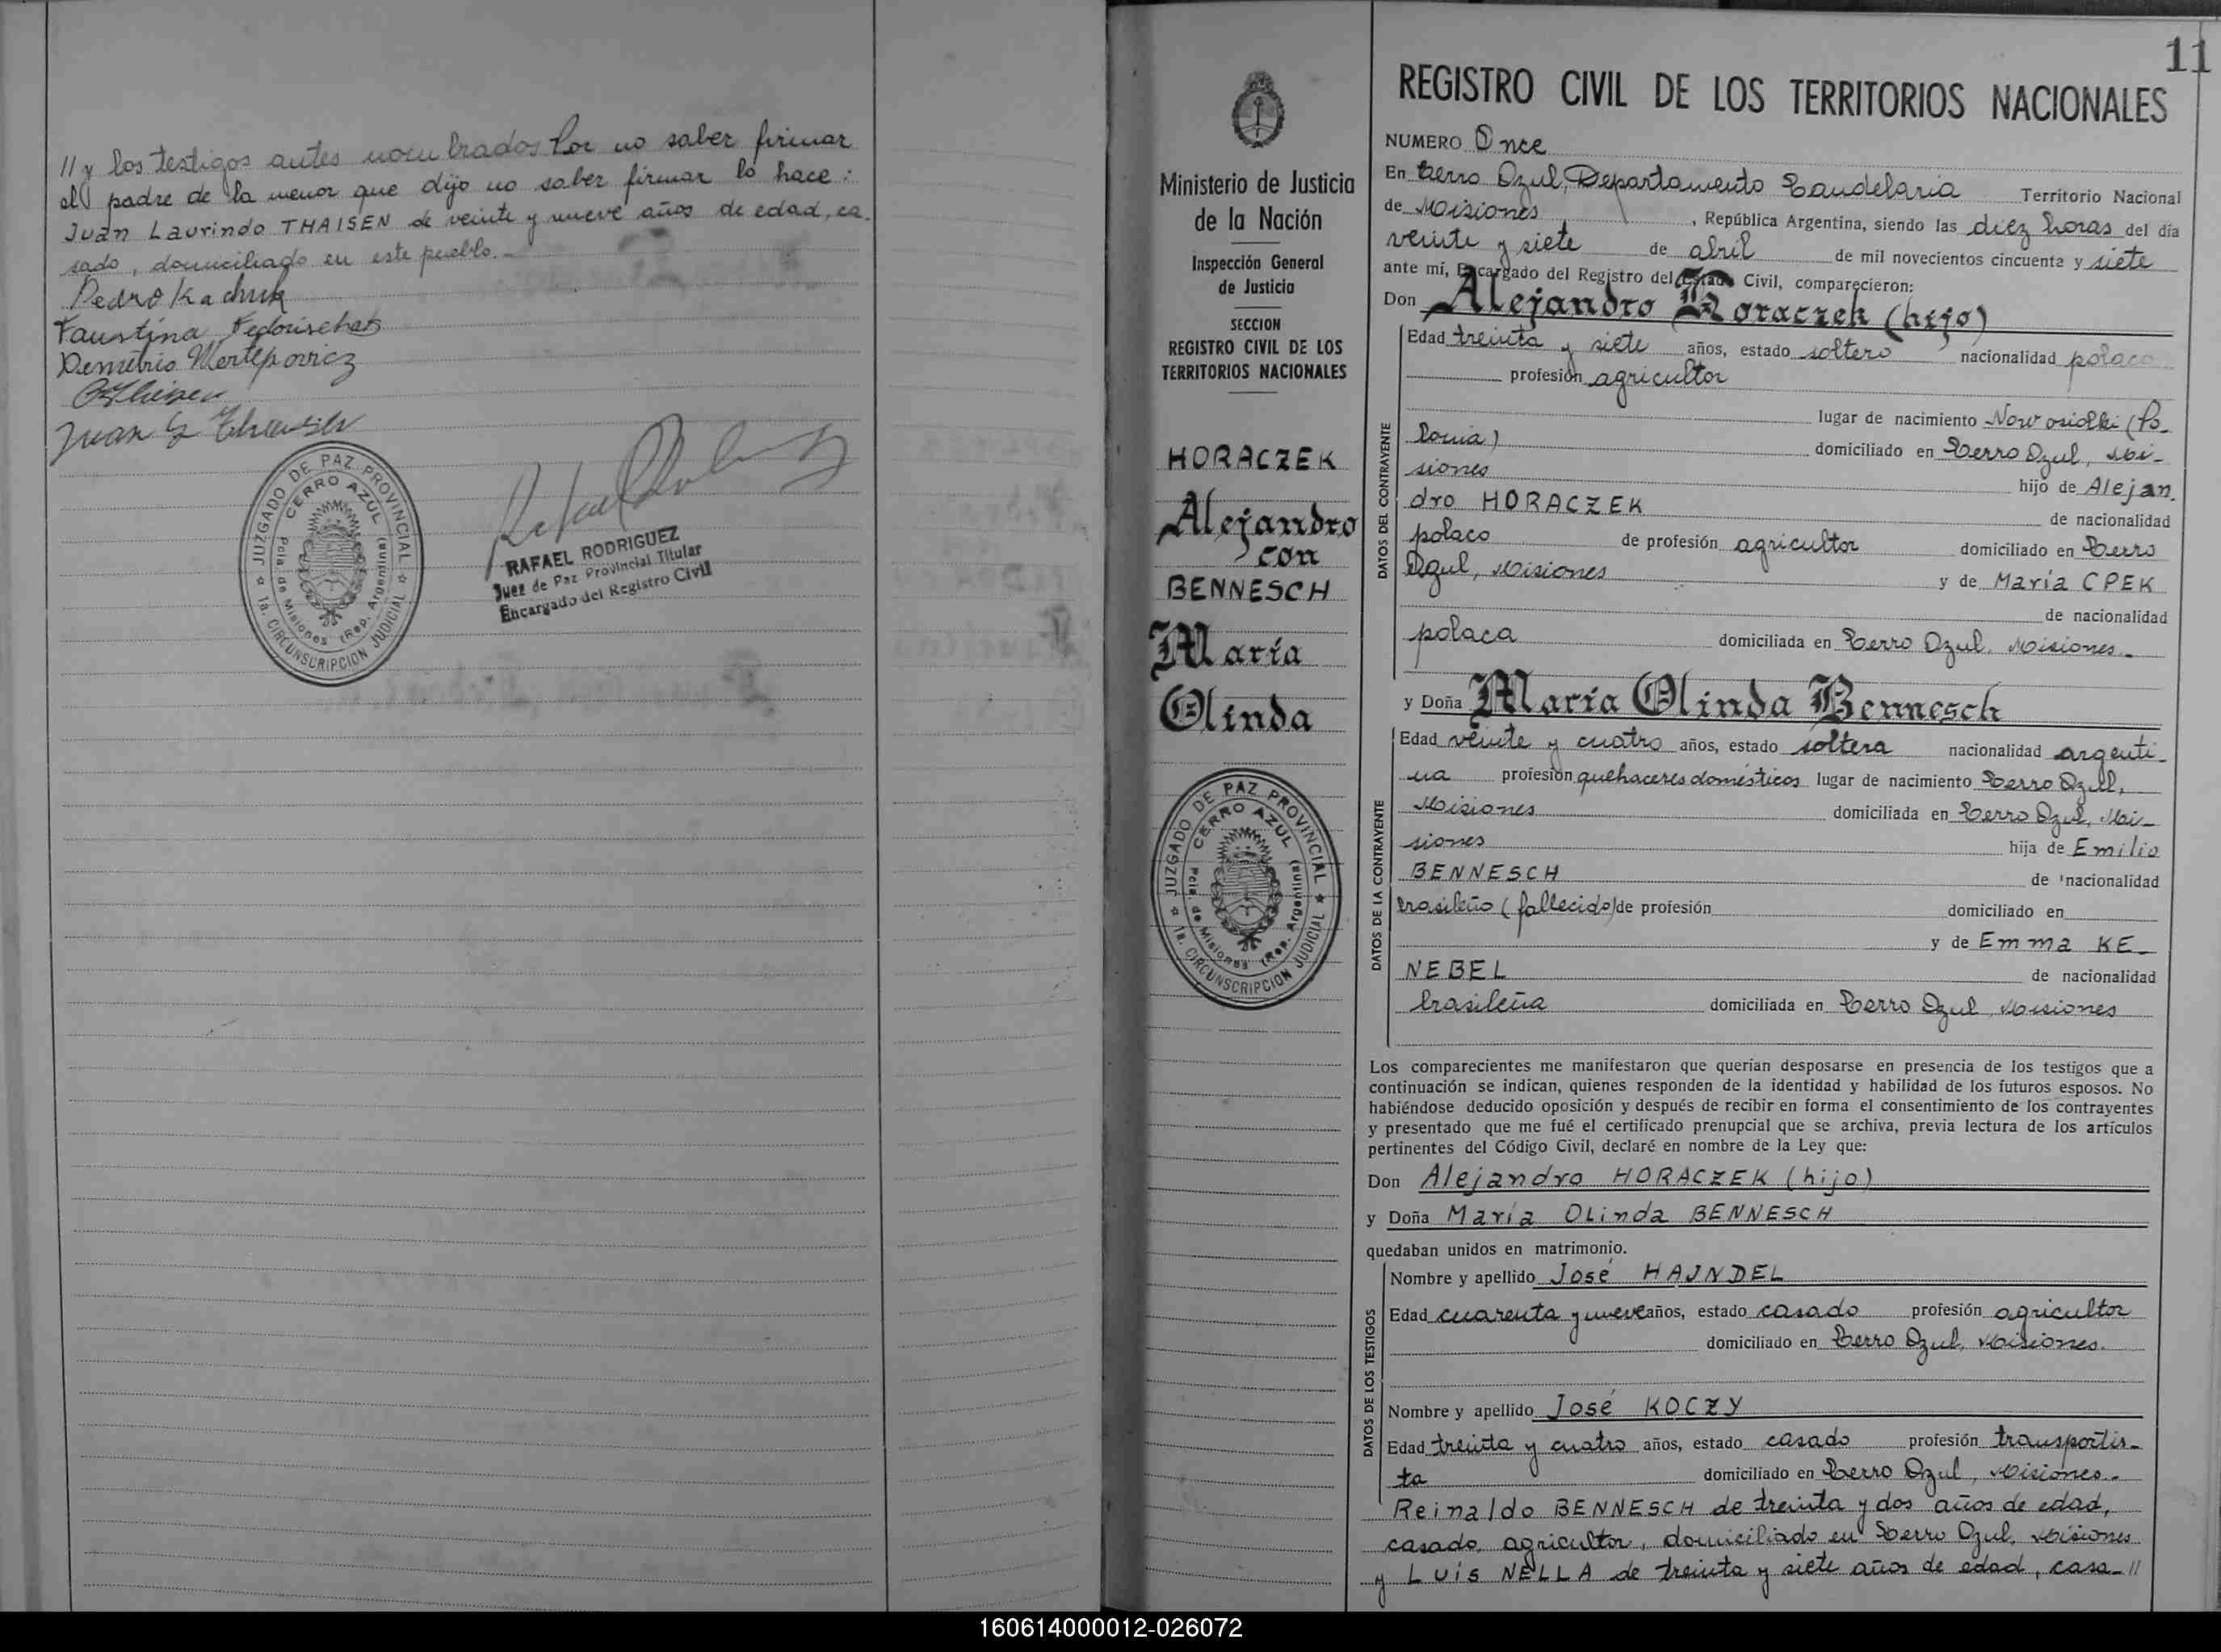 // y los testigos antes nombrados Por no saber firmar
el padre de la menor que dijo no saber firmar lo hace:
Juan Laurindo THAISEN de veinte y nueve años de edad, ca-
sado, domiciliado en este pueblo.-
Pedro Kachuk
Faustina
Demetrio
Juan
JUZGADO DE PAZ PROVINCIAL
CERRO AZUL
Pcia. de Misiones (Rep. Argentina)
1a. CIRCUNSCRIPCION JUDICIAL
RAFAEL RODRIGUEZ
Juez de Paz Provincial Titular
Encargado del Registro Civil
11
Ministerio de Justicia
de la Nación
Inspección General
de Justicia
SECCION
REGISTRO CIVIL DE LOS
TERRITORIOS NACIONALES
HORACZEK
Alejandro
con
BENNESCH
María
Olinda
JUZGADO DE PAZ PROVINCIAL
CERRO AZUL
Pcia. de Misiones (Rep. Argentina)
1a. CIRCUNSCRIPCION JUDICIAL
REGISTRO CIVIL DE LOS TERRITORIOS NACIONALES
NUMERO Once
En Cerro Azul, Departamento Candelaria Territorio Nacional
de Misiones, República Argentina, siendo las diez horas del día
veinte y siete de abril de mil novecientos cincuenta y siete
ante mí, Encargado del Registro del Estado Civil, comparecieron:
Don Alejandro Horaczek (hijo)
Edad treinta y siete años, estado soltero nacionalidad polaco
profesión agricultor
lugar de nacimiento Nowosiolki (Po-
lonia) domiciliado en Cerro Azul, Mi-
siones hijo de Alejan-
dro HORACZEK de nacionalidad
polaco de profesión agricultor domiciliado en Cerro
Azul, Misiones y de María CPEK
de nacionalidad
polaca domiciliada en Cerro Azul, Misiones.-
DATOS DEL CONTRAYENTE
y Doña María Olinda Bennesch
Edad veinte y cuatro años, estado soltera nacionalidad argenti-
na profesión quehaceres domésticos lugar de nacimiento Cerro Azul,
Misiones domiciliada en Cerro Azul, Mi-
siones hija de Emilio
BENNESCH de nacionalidad
brasileño (fallecido) de profesión domiciliado en
y de Emma KE-
NEBEL de nacionalidad
brasileña domiciliada en Cerro Azul, Misiones
DATOS DE LA CONTRAYENTE
Los comparecientes me manifestaron que querian desposarse en presencia de los testigos que a
continuación se indican, quienes responden de la identidad y habilidad de los futuros esposos. No
habiéndose deducido oposición y después de recibir en forma el consentimiento de los contrayentes
y presentado que me fué el certificado prenupcial que se archiva, previa lectura de los artículos
pertinentes del Código Civil, declaré en nombre de la Ley que:
Don Alejandro HORACZEK (hijo)
y Doña María Olinda BENNESCH
quedaban unidos en matrimonio.
Nombre y apellido José HAJNDEL
Edad cuarenta y nueve años, estado casado profesión agricultor
domiciliado en Cerro Azul, Misiones.
Nombre y apellido José KOCZY
Edad treinta y cuatro años, estado casado profesión transportis-
ta domiciliado en Cerro Azul, Misiones.
DATOS DE LOS TESTIGOS
Reinaldo BENNESCH de treinta y dos años de edad,
casado, agricultor, domiciliado en Cerro Azul, Misiones
y Luís NELLA de treinta y siete años de edad, casa-//
160614000012-026072